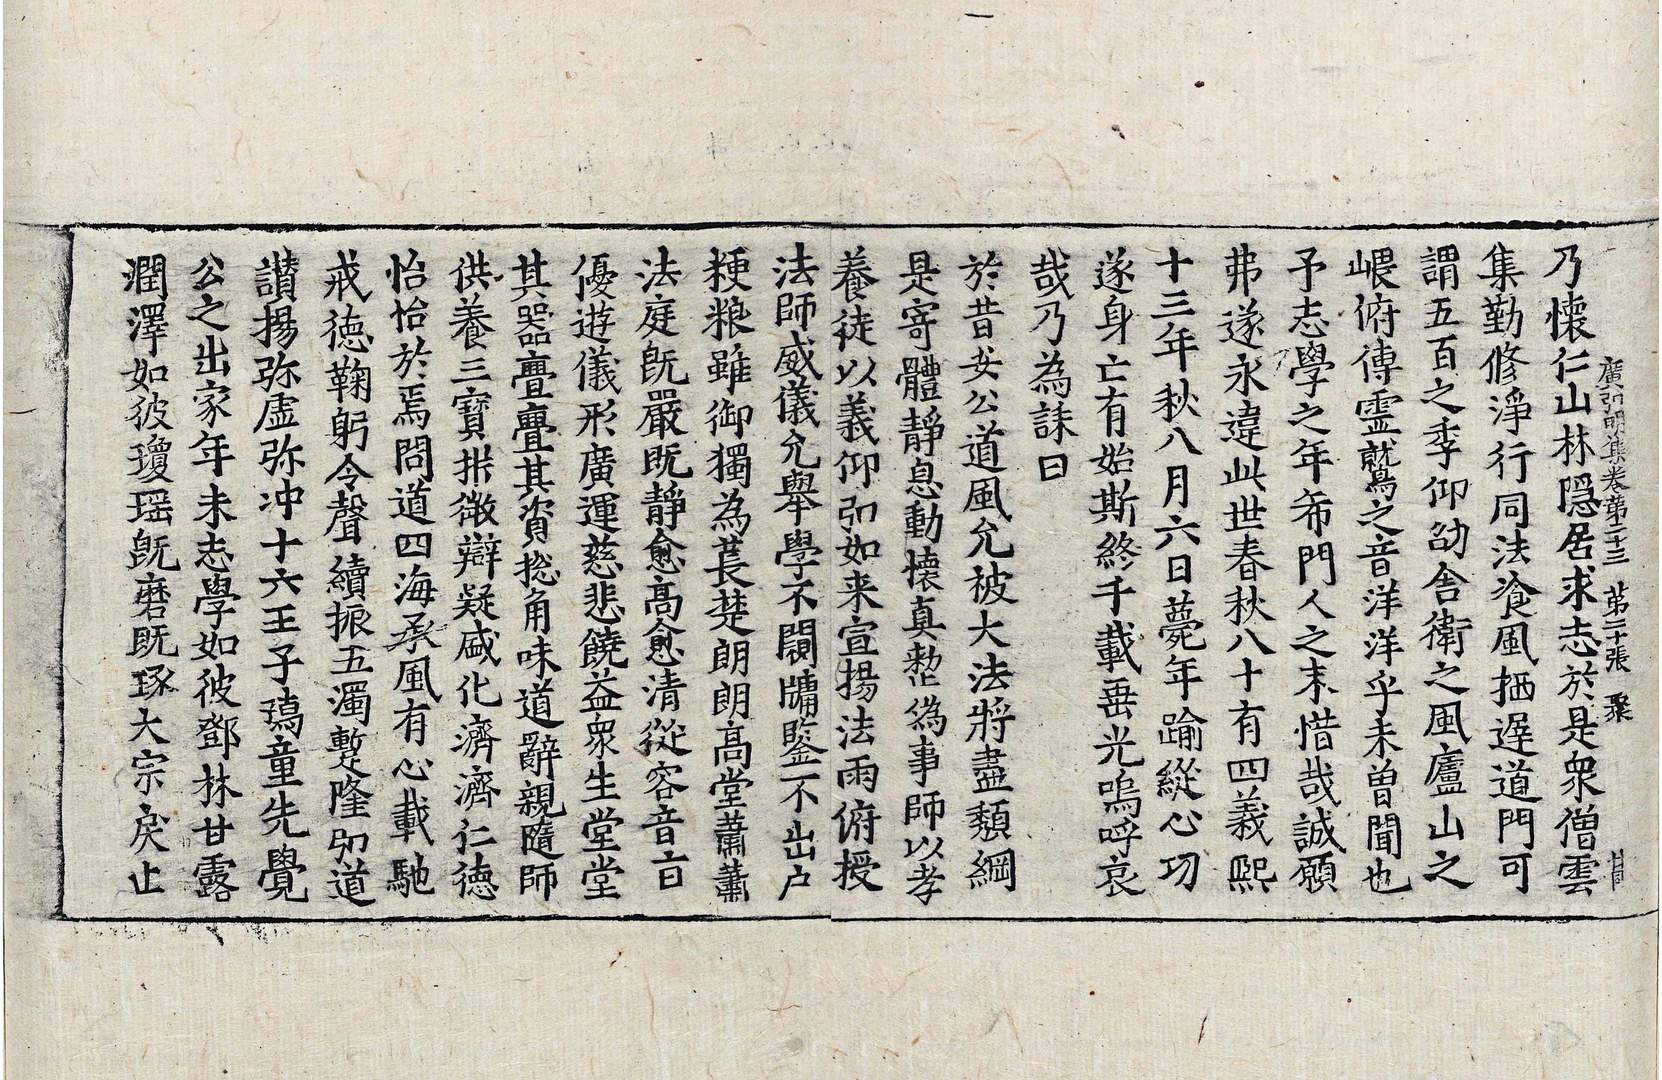 廣弘明集卷第二十三 第二十張 聚
乃懷仁山林隱居求志於是衆僧雲
集勤修淨行同法飡風栖遲道門可
謂五百之季仰劭舍衛之風廬山之
嵔俯傳靈鷲之音洋洋乎未曾聞也
予志學之年希門人之末惜哉誠願
弗遂永違此世春秋八十有四義熙
十三年秋八月六日薨年踰縱心功
遂身亡有始斯終千載垂光嗚呼哀
哉乃為誄曰
於昔安公道風允被大法將盡頹綱
是寄體靜息動懷真整偽事師以孝
養徒以義仰弘如来宣揚法雨俯授
法師威儀允舉學不闚牖鑒不出户
粳粮雖御獨為萇楚朗朗高堂蕭蕭
法庭旣嚴旣靜愈高愈清從容音旨
優遊儀形廣運慈悲饒益衆生堂堂
其器亹亹其資捴角味道辭親隨師
供養三寶析微辯疑盛化濟濟仁德
怡怡於焉問道四海承風有心載馳
戒德鞠躬令聲續振五濁蹔隆弘道
讃揚弥虚弥冲十六王子瑀童先覺
公之出家年未志學如彼鄧林甘露
潤澤如彼瓊瑶旣磨旣琢大宗戾止